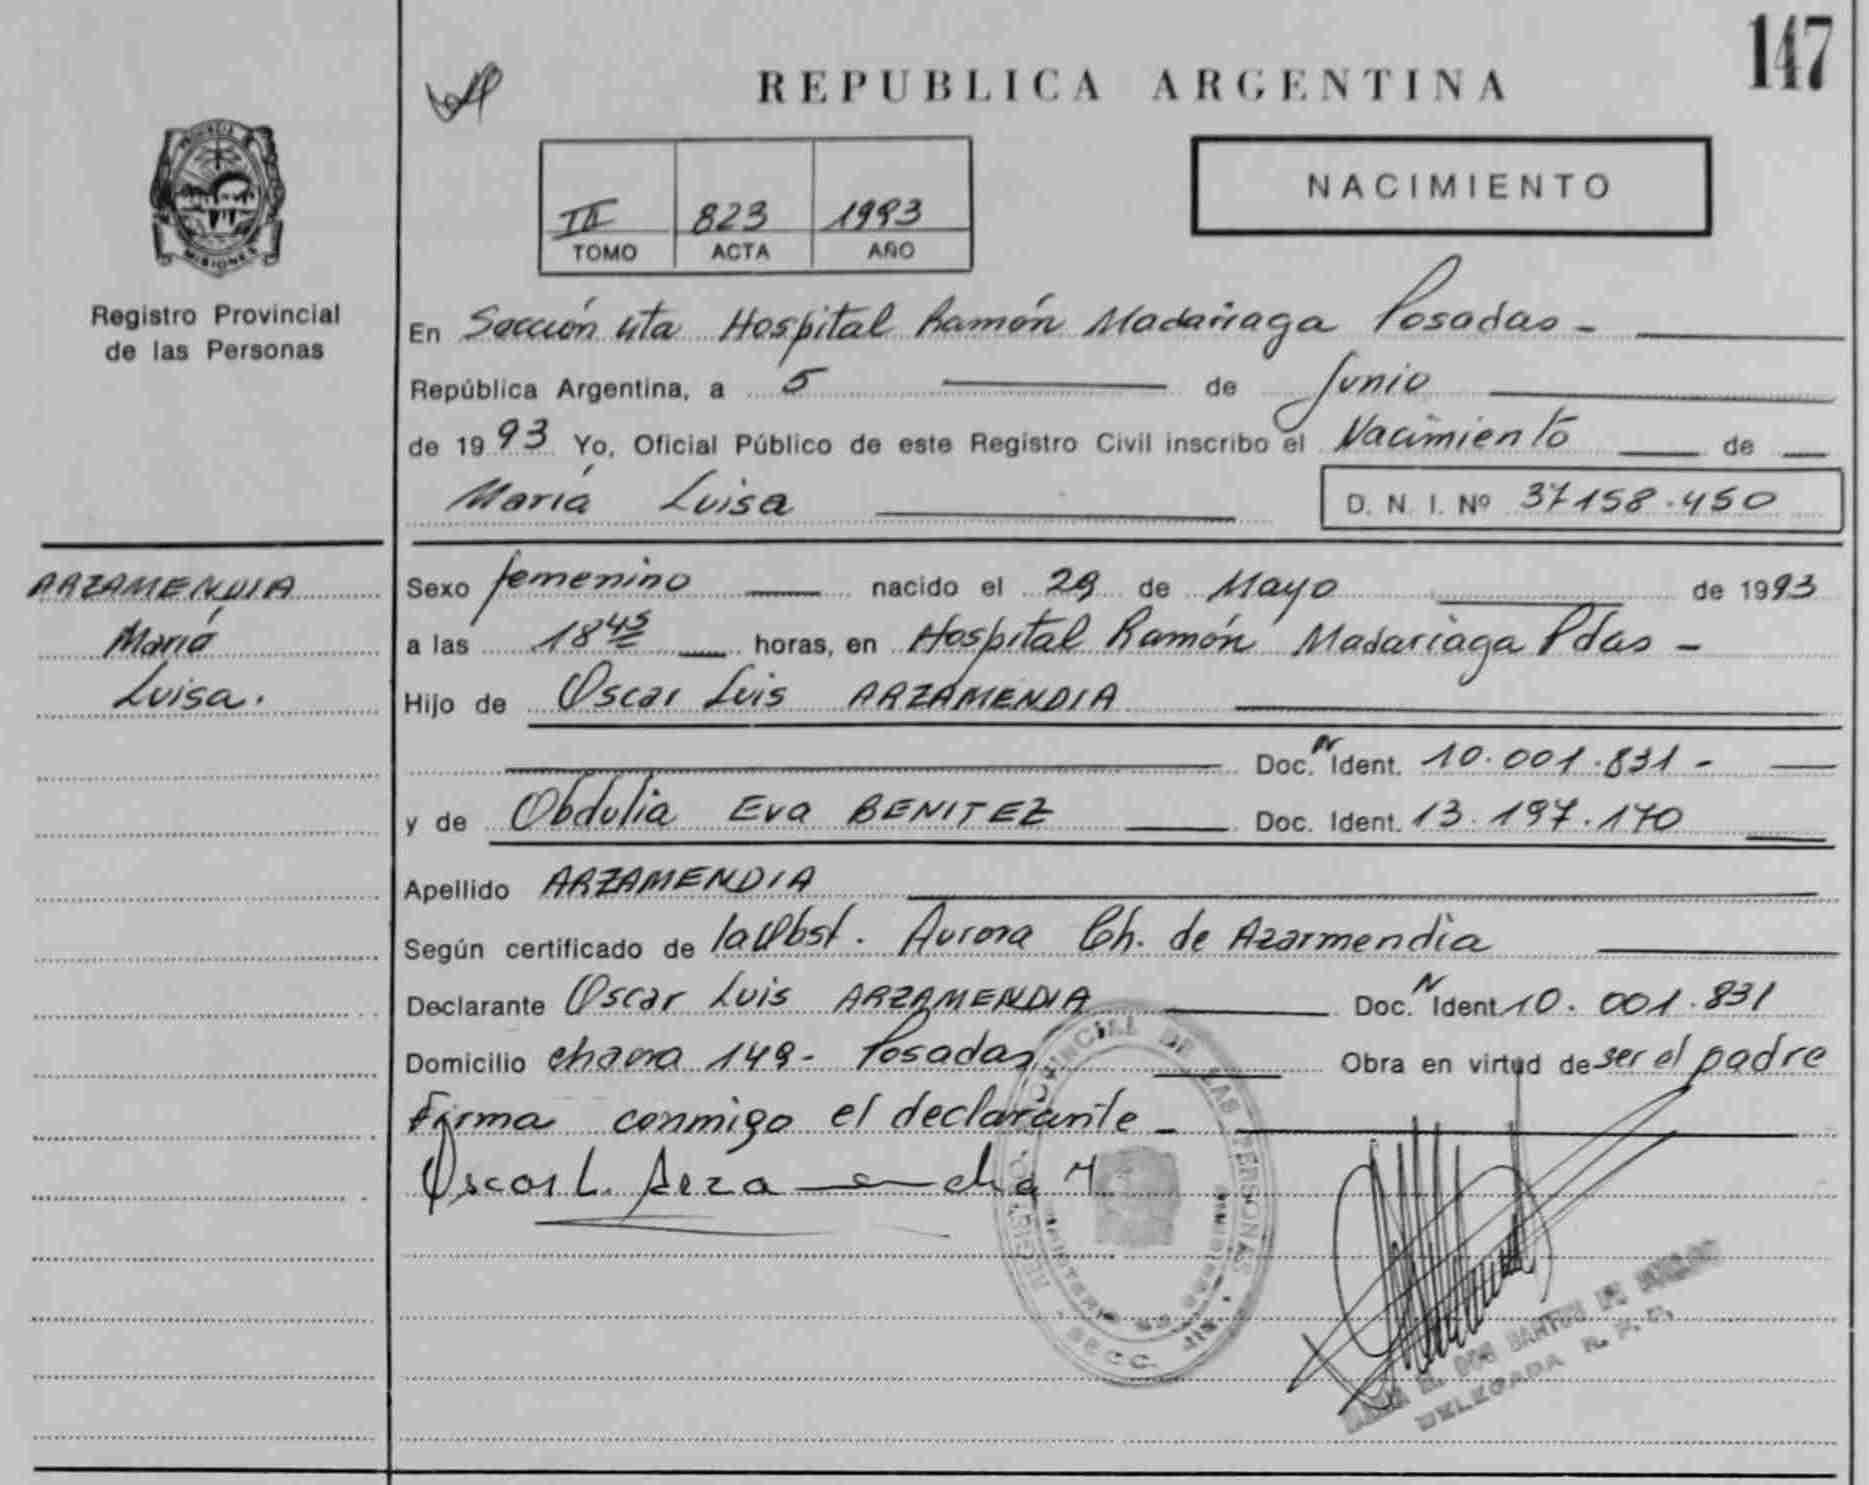 147
REPUBLICA ARGENTINA
NACIMIENTO
823 1993
TOMO ACTA AÑO
PROVINCIA DE
MISIONES
Registro Provincial
de las Personas
En Sección 4ta Hospital Ramón Madariaga Posadas -
República Argentina, a 5 de Junio
de 1993 Yo, Oficial Público de este Registro Civil inscribo el Nacimiento de
María Luisa D. N. I. Nº 37158.450
ARZAMENDIA
María
Luisa.
Sexo femenino nacido el 29 de Mayo de 1993
a las 18 45 horas, en Hospital Ramón Madariaga Pdas -
Hijo de Oscar Luis ARZAMENDIA
Doc. Ident. 10.001.831 -
y de Obdulia Eva BENITEZ Doc. Ident. 13.197.170
Apellido ARZAMENDIA
Según certificado de la Obst. Aurora Ch. de Azarmendia
Declarante Oscar Luis ARZAMENDIA Doc. N Ident 10.001.831
Domicilio chacra 149- Posadas Obra en virtud de ser el padre
Firma conmigo el declarante -
Oscar L. Arzamendia
PROVINCIAL DE LAS PERSONAS
SECC. 4ta.
DOS SANTOS DE
DELEGADA R. P. P.